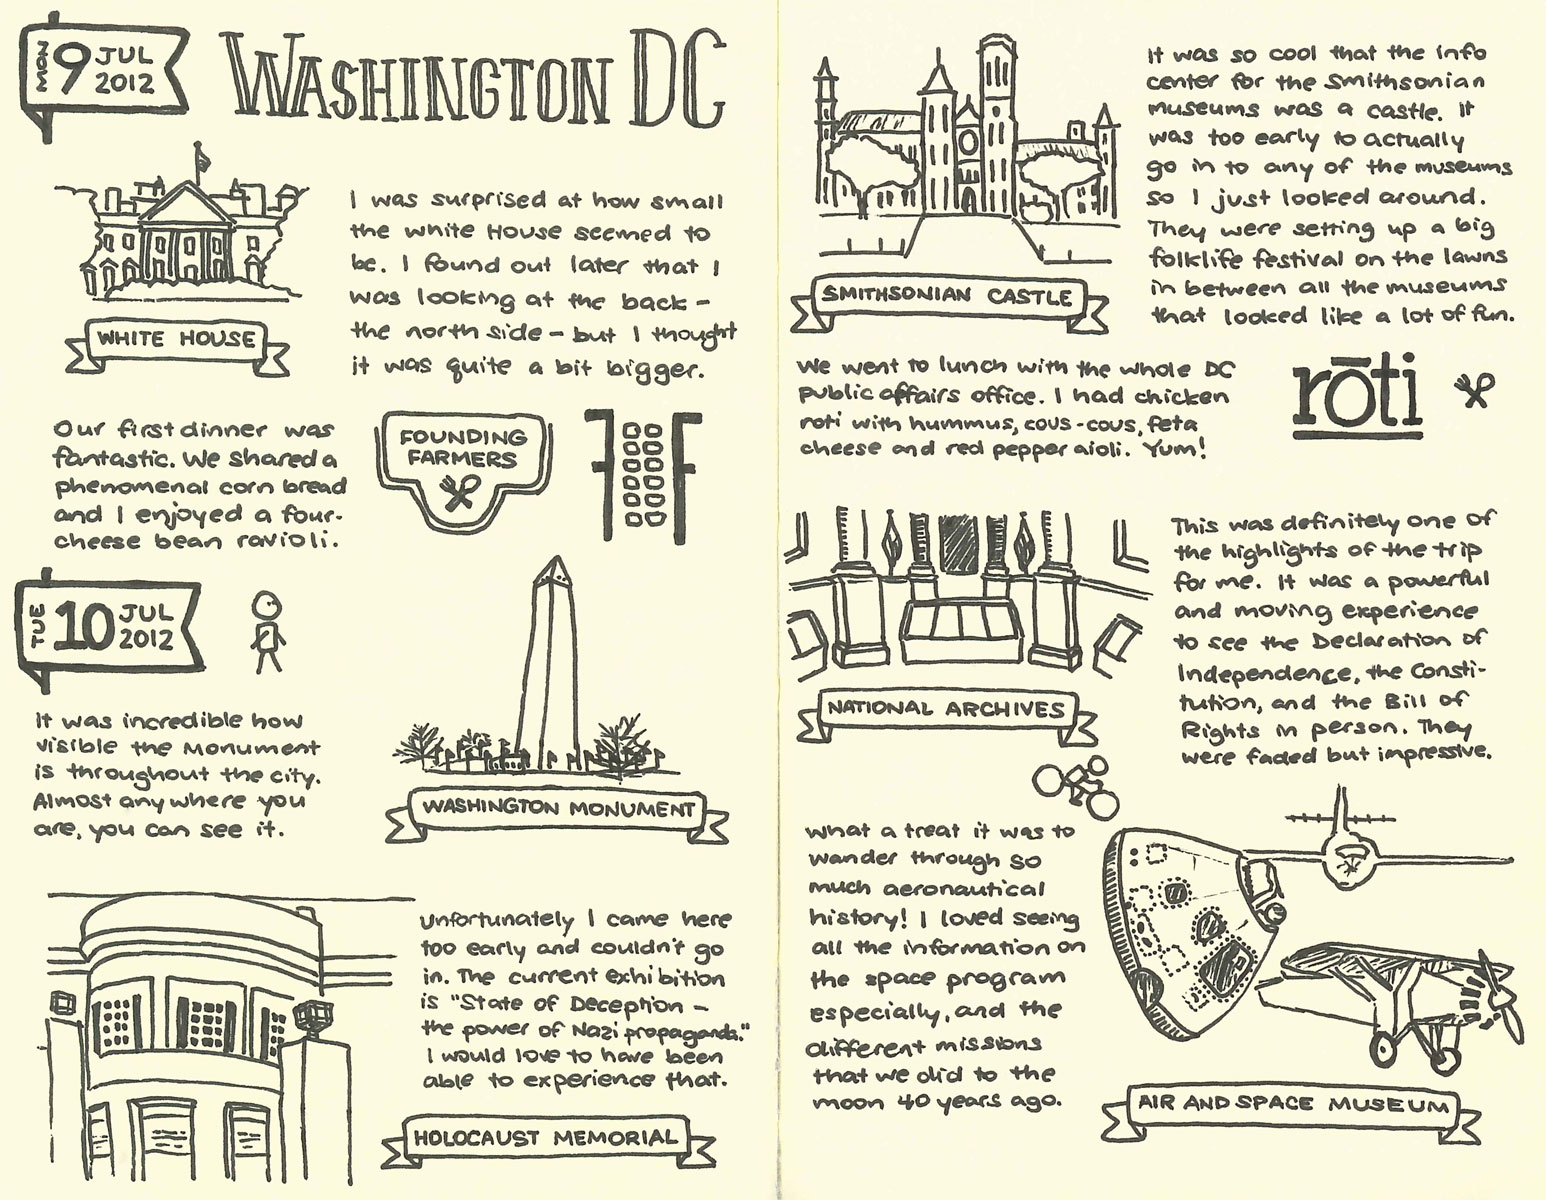 MON 9 JUL 2012
WASHINGTON DC
I was surprised at how small
the White House seemed to
be. I found out later that I
was looking at the back -
the north side - but I thought
it was quite a bit bigger.
WHITE HOUSE
Our first dinner was
fantastic. We shared a
phenomenal corn bread
and I enjoyed a four-
cheese bean ravioli.
FOUNDING
FARMERS
TUE 10 JUL 2012
It was incredible how
visible the Monument
is throughout the city.
Almost anywhere you
are, you can see it.
WASHINGTON MONUMENT
Unfortunately I came here
too early and couldn't go
in. The current exhibition
is "State of Deception -
the power of Nazi propaganda."
I would love to have been
able to experience that.
HOLOCAUST MEMORIAL
It was so cool that the info
center for the Smithsonian
museums was a castle. It
was too early to actually
go in to any of the museums
so I just looked around.
They were setting up a big
folklife festival on the lawns
in between all the museums
that looked like a lot of fun.
SMITHSONIAN CASTLE
We went to lunch with the whole DC
public affairs office. I had chicken
roti with hummus, cous-cous, feta
cheese and red pepper aioli. Yum!
rōti
This was definitely one of
the highlights of the trip
for me. It was a powerful
and moving experience
to see the Declaration of
Independence, the Consti-
tution, and the Bill of
Rights in person. They
were faded but impressive.
NATIONAL ARCHIVES
What a treat it was to
wander through so
much aeronautical
history! I loved seeing
all the information on
the space program
especially, and the
different missions
that we did to the
moon 40 years ago.
AIR AND SPACE MUSEUM